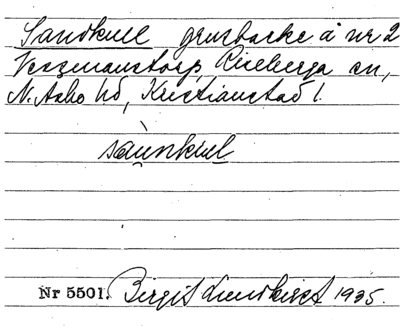 Sandkull grusbacke å nr 2
Vegmanstorp, Riseberga sn,
N. Åsbo hd, Kristianstad l.
sàunkuel
Nr 5501. Birgit Lundkvist 1935.